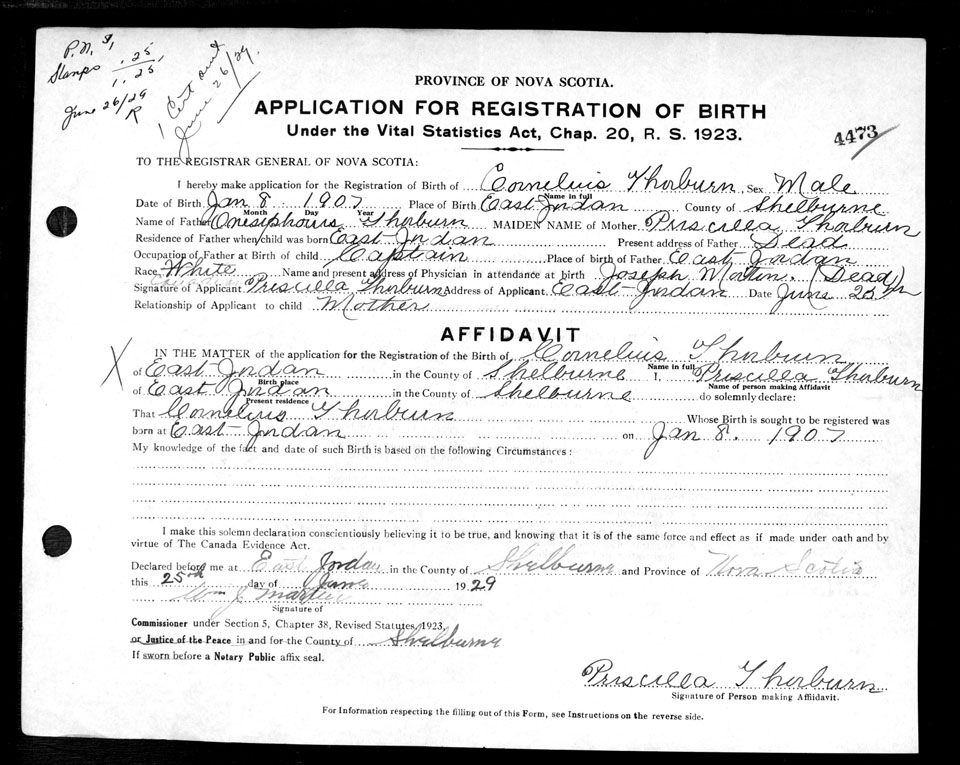 P.N. $1
Stamps .25
1.25
June 26/29
R
1 Cert
June 26/29.
PROVINCE OF NOVA SCOTIA.
APPLICATION FOR REGISTRATION OF BIRTH
Under the Vital Statistics Act, Chap. 20, R. S. 1923.
4473
TO THE REGISTRAR GENERAL OF NOVA SCOTIA:
I hereby make application for the Registration of Birth of Cornelius Thorburn, Sex Male
Name in full
Date of Birth Jan 8 1907 Place of Birth East Jordan County of Shelburne
Month Day Year
Name of Father Onesiphorus Thorburn MAIDEN NAME of Mother Priscilla Thorburn
Residence of Father when child was born East Jordan Present address of Father Dead
Occupation of Father at Birth of child Captain Place of birth of Father East Jordan
Race White Name and present address of Physician in attendance at birth Joseph Martin. (Dead)
Signature of Applicant Priscilla Thorburn Address of Applicant East Jordan Date June 25th
Relationship of Applicant to child Mother
AFFIDAVIT
IN THE MATTER of the application for the Registration of the Birth of Cornelius Thorburn
Name in full
of East Jordan in the County of Shelburne I, Priscilla Thorburn
Birth place Name of person making Affidavit
of East Jordan in the County of Shelburne do solemnly declare:
Present residence
That Cornelius Thorburn Whose Birth is sought to be registered was
born at East Jordan on Jan 8. 1907
My knowledge of the fact and date of such Birth is based on the following Circumstances:
I make this solemn declaration conscientiously believing it to be true, and knowing that it is of the same force and effect as if made under oath and by
virtue of The Canada Evidence Act.
Declared before me at East Jordan in the County of Shelburne and Province of Nova Scotia
this 25th day of June 1929
Wm J Martin
Signature of
Commissioner under Section 5, Chapter 38, Revised Statutes, 1923,
or Justice of the Peace in and for the County of Shelburne
If sworn before a Notary Public affix seal.
Priscilla Thorburn
Signature of Person making Affiidavit.
For Information respecting the filling out of this Form, see Instructions on the reverse side.